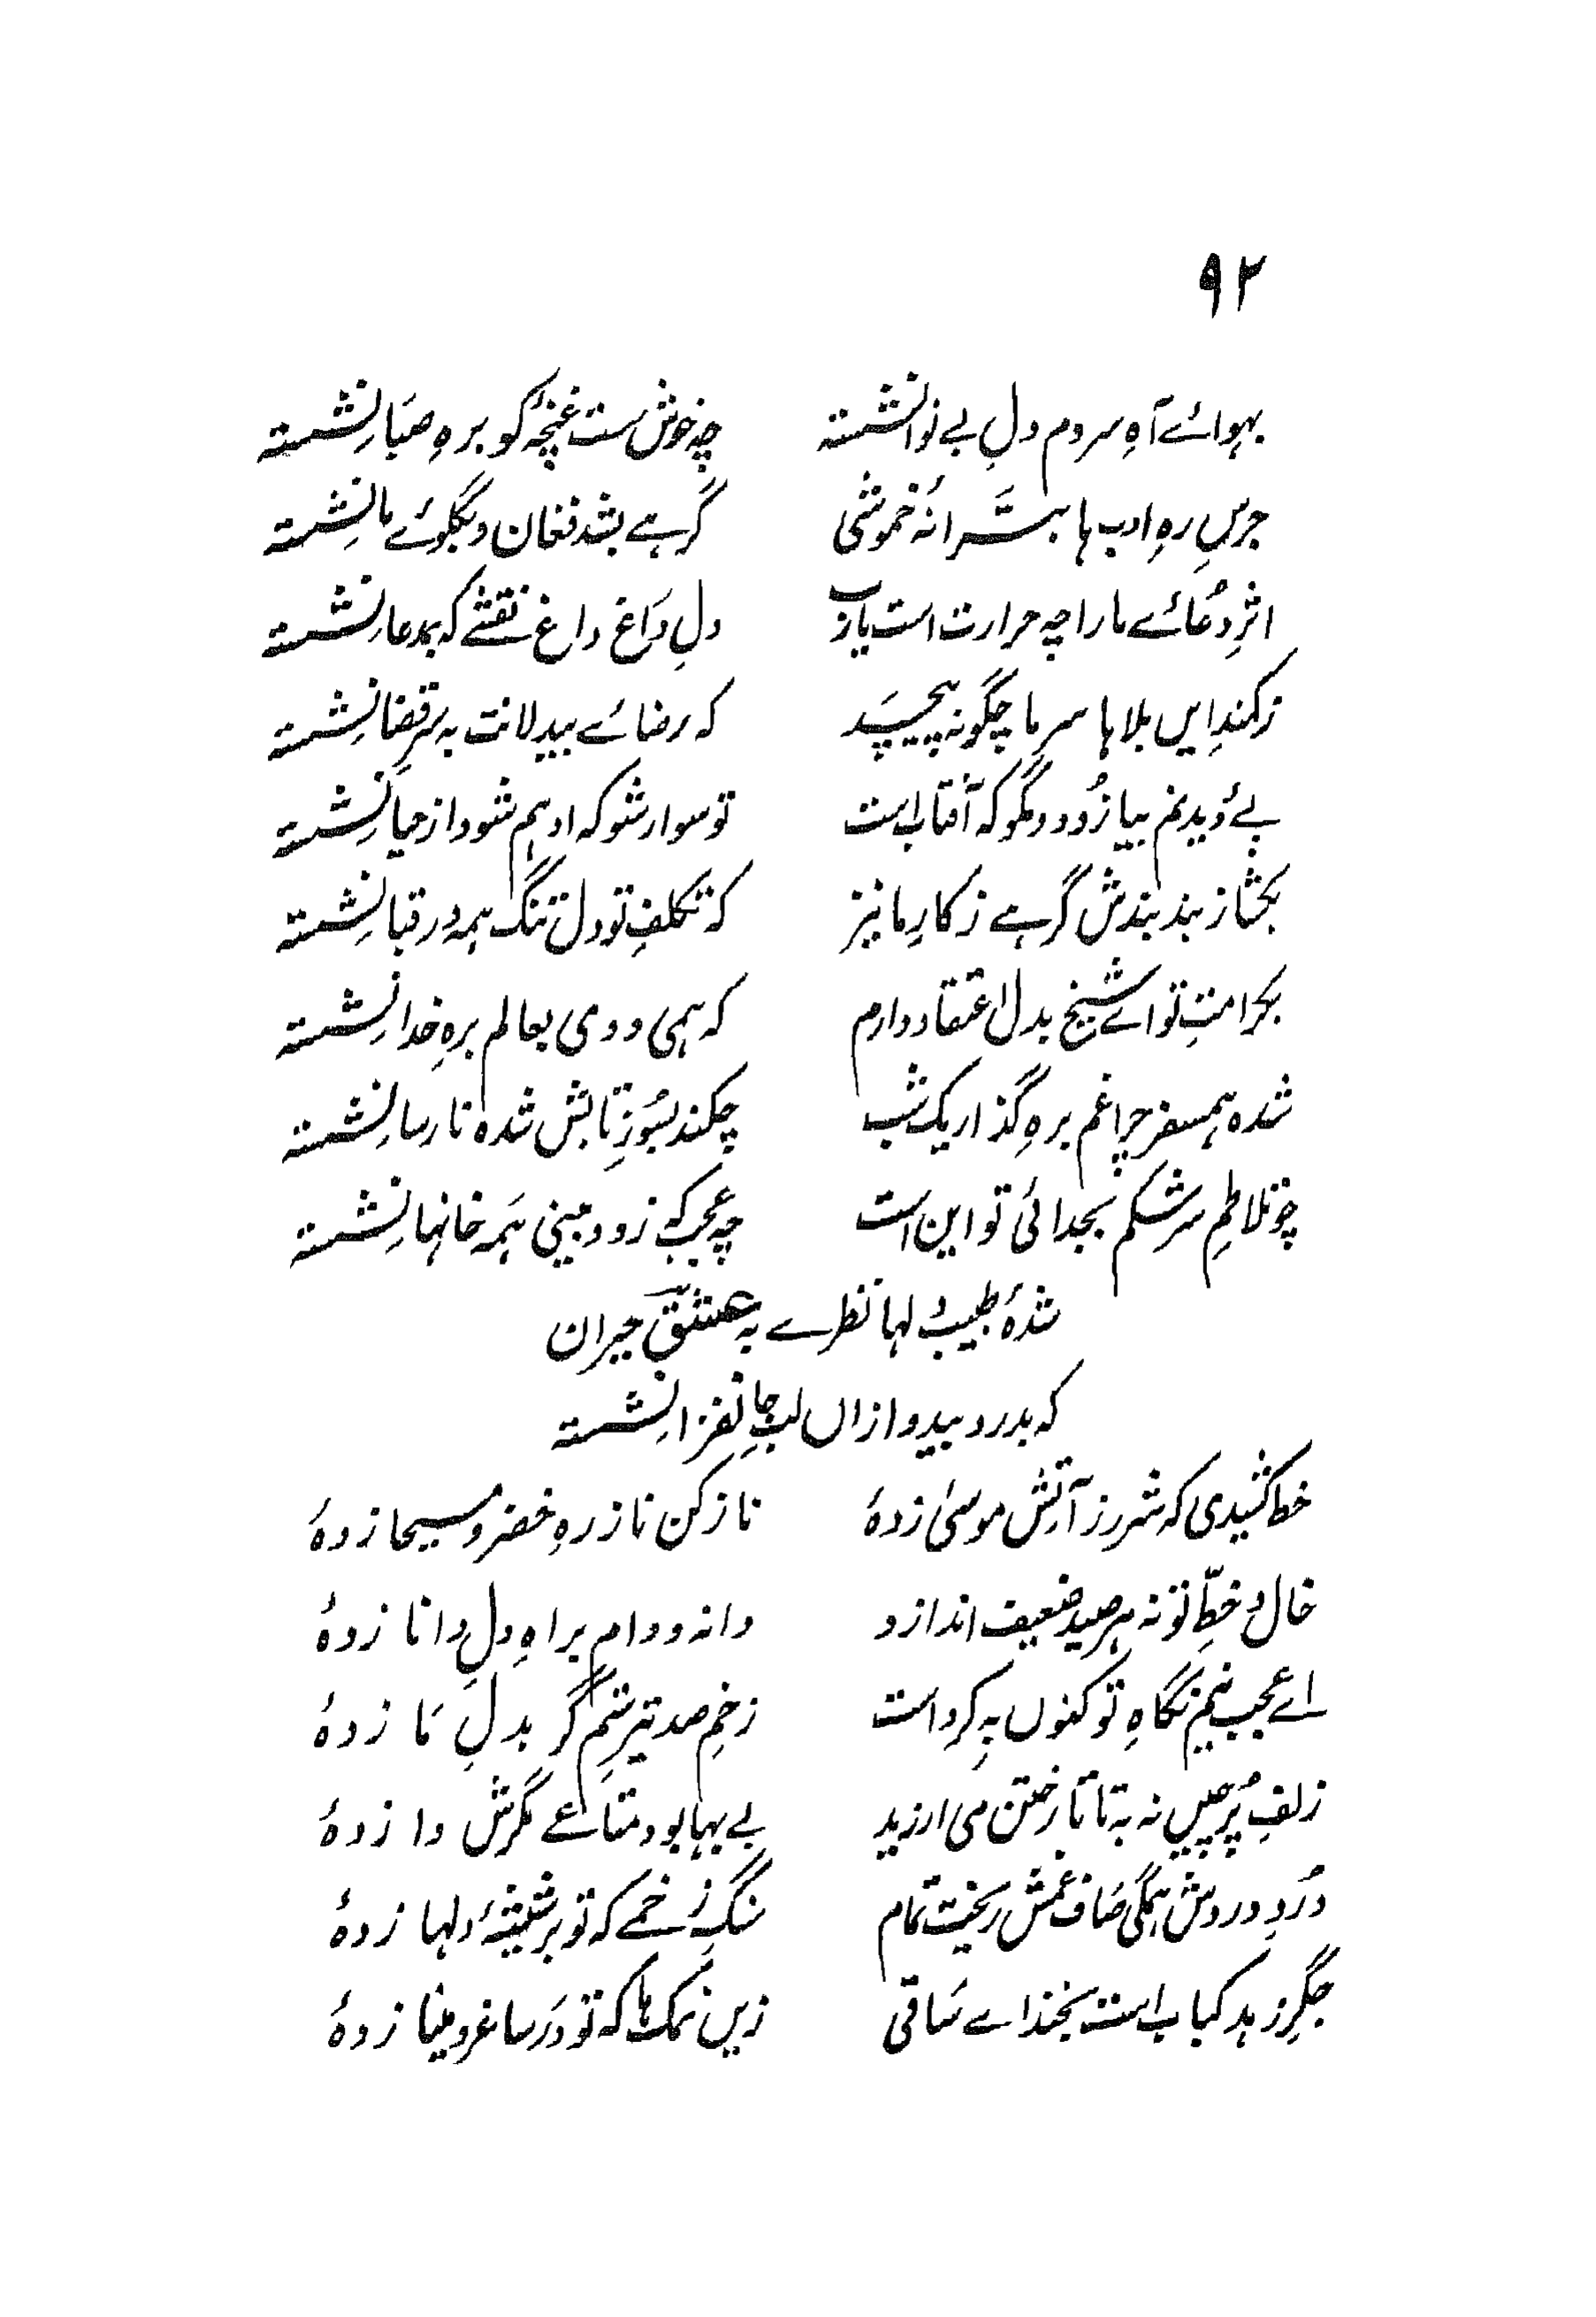 ۹۲
بہوائے آہِ سردم دلِ بے نوا نشستہ چہ خوش ست غنچۂ کو برہِ صبا نِشستہ
جرسِ رہِ ادب ہا بسترانۂ خموشی گرہے بشد فغان و بگلوئے ما نِشستہ
اثرِ دُعائے ما را چہ حرارت است یارب دلِ داغ داغ نقشے کہ بمدعا نِشستہ
ز کمندِ ایں بلاہا سرِ ما چگونہ پیچپد کہ رضائے بیدلانت بہ سرِ قضا نِشستہ
پئے دیدنم بیا زُود و مگو کہ آفتاب است تو سوار شو کہ او ہم شود از حیا نِشستہ
بکشا ز بند بندش گرہے ز کارِ ما نیز کہ تکلفِ تو دل تنگ ہمہ در قبا نِشستہ
بکرامتِ تو اے شیخ بدل اعتقاد دارم کہ ہمی دوی بعالم برہِ خدا نِشستہ
شدہ ہمسفر چراغم برہِ گذار یک شب چکند بسُوزِ تابش شدہ نارسا نِشستہ
چو تلاطمِ سرشکم بجدائی تو این است چہ عجب کہ زود بینی ہَمہ خانہا نِشستہ
شدۂ طبیبِ دلہا نظرے بہ عشقؔ حیران
کہ بدرد بیدوا زاں لبِ جانفزا نِشستہ
خط کشیدی کہ شرر ز آتشِ موسیٰ زدۂ ناز کن ناز رہِ خضر و مسیحا زدۂ
خال و خطِّ تو نہ ہر صیدِ ضعیف اندازد دانہ و دام براہِ دلِ دانا زدۂ
اے عجب نیم نگاہِ تو کنوں پہ کرد است زخمِ صد تیرِ ستم گر بدلِ مَا زدۂ
زلفِ پُر چیں نہ بہ تاتار ختن می ارزید بے بہا بود متاعے مگرش وا زدۂ
دُردِ دردش ہمگی صَاف غمش ریخت تمام سنگِ زخمے کہ تو بر شیشۂ دلہا زدۂ
جگرِ زہد کباب است بخند اے سَاقی زیں نمک ہا کہ تو دَر ساغر و مینا زدۂ